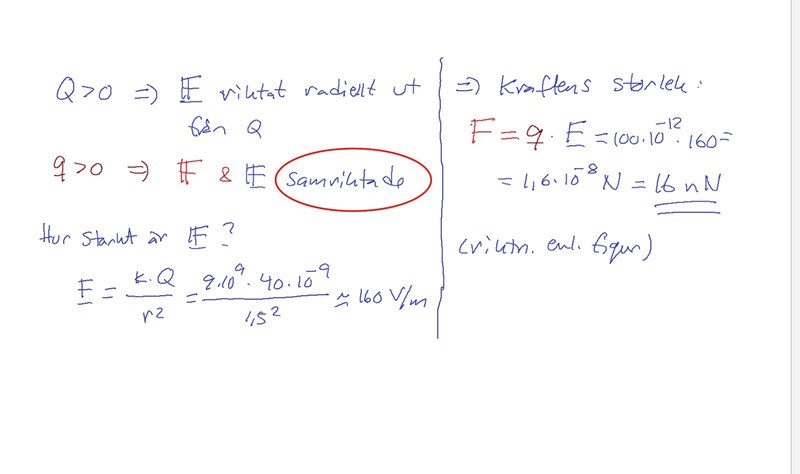 Q>0 => E riktat radiellt ut
från Q
q>0 => F & E samriktade
Hur starkt är E?
E = k·Q/r² = 9·10⁹·40·10⁻⁹/1,5² ≈ 160 V/m
=> Kraftens storlek:
F = q·E = 100·10⁻¹²·160 =
= 1,6·10⁻⁸ N = 16 nN
(riktn. enl. figur)